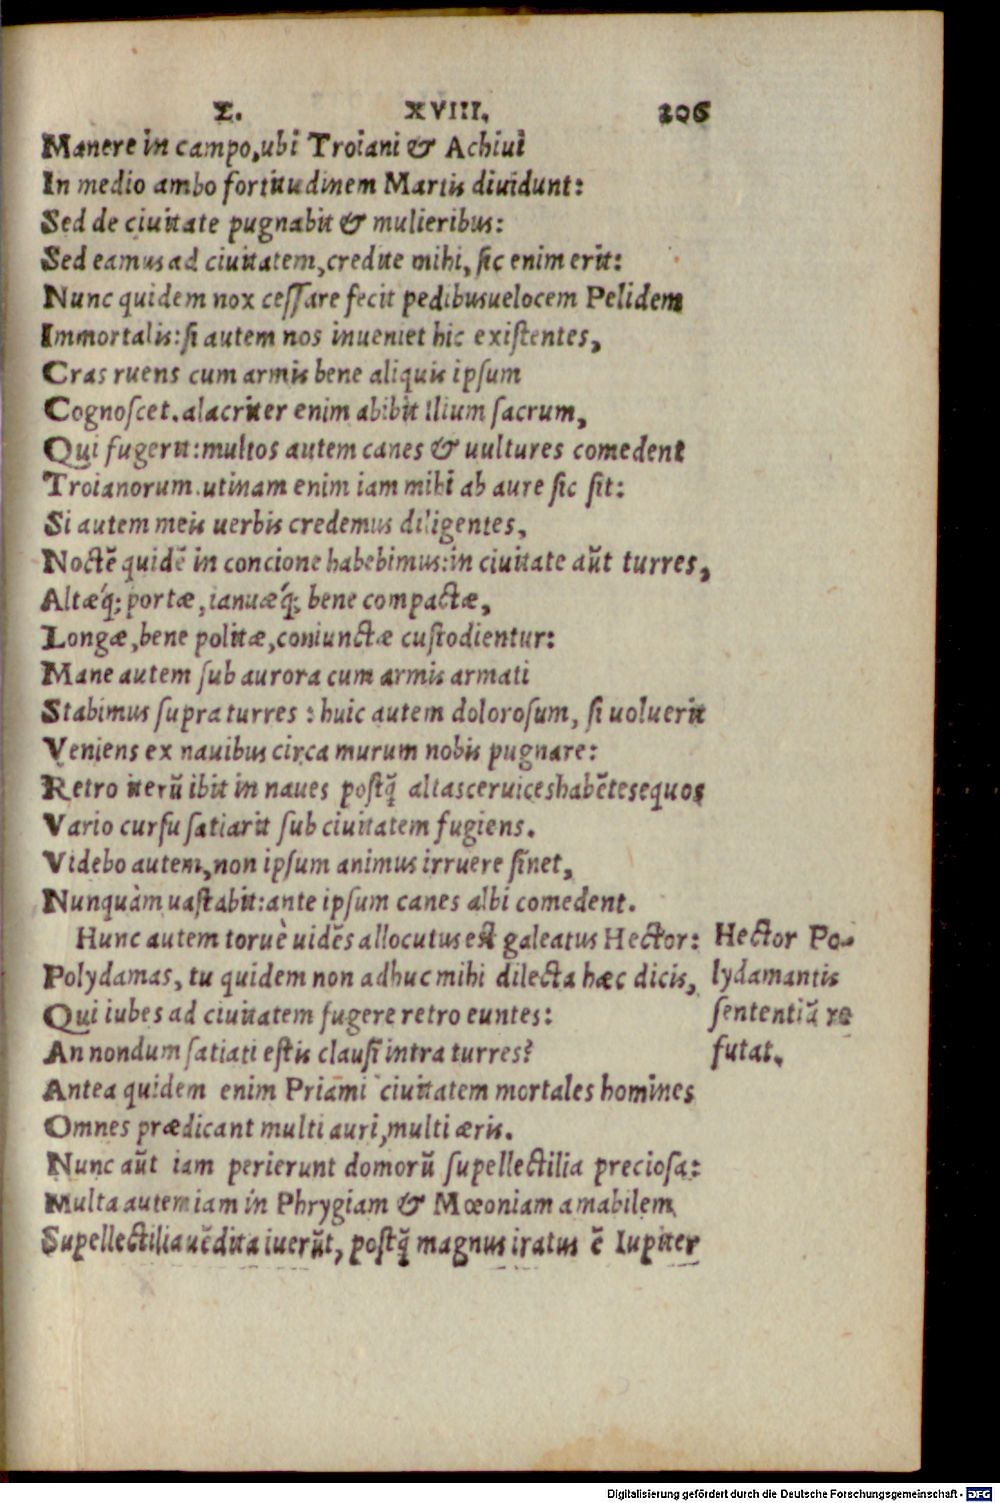 Σ. XVIII. 206
Manere in campo, ubi Troiani & Achiui
In medio ambo fortitudinem Martis diuidunt:
Sed de ciuitate pugnabit & mulieribus:
Sed eamus ad ciuitatem, credite mihi, sic enim erit:
Nunc quidem nox cessare fecit pedibus uelocem Pelidem
Immortalis: si autem nos inueniet hic existentes,
Cras ruens cum armis bene aliquis ipsum
Cognoscet. alacriter enim abibit Ilium sacrum,
Qui fugerit: multos autem canes & uultures comedent
Troianorum. utinam enim iam mihi ab aure sic sit:
Si autem meis uerbis credemus diligentes,
Noctē quidē in concione habebimus: in ciuitate aūt turres,
Altæq́; portæ, ianuæq́; bene compactæ,
Longæ, bene politæ, coniunctæ custodientur:
Mane autem sub aurora cum armis armati
Stabimus supra turres: huic autem dolorosum, si uoluerit
Veniens ex nauibus circa murum nobis pugnare:
Retro iterū ibit in naues postq̄ altas ceruices habētes equos
Vario cursu satiarit sub ciuitatem fugiens.
Videbo autem, non ipsum animus irruere sinet,
Nunquàm uastabit: ante ipsum canes albi comedent.
Hunc autem toruè uidēs allocutus est galeatus Hector:
Polydamas, tu quidem non adhuc mihi dilecta hæc dicis,
Qui iubes ad ciuitatem fugere retro euntes:
An nondum satiati estis clausi intra turres?
Antea quidem enim Priami ciuitatem mortales homines
Omnes prædicant multi auri, multi æris.
Nunc aūt iam perierunt domorū supellectilia preciosa:
Multa autem iam in Phrygiam & Mœoniam amabilem
Supellectilia uēdita iuerūt, postq̄ magnus iratus ē Iupiter
Hector Po-
lydamantis
sententiā re
futat.
Digitalisierung gefördert durch die Deutsche Forschungsgemeinschaft - DFG